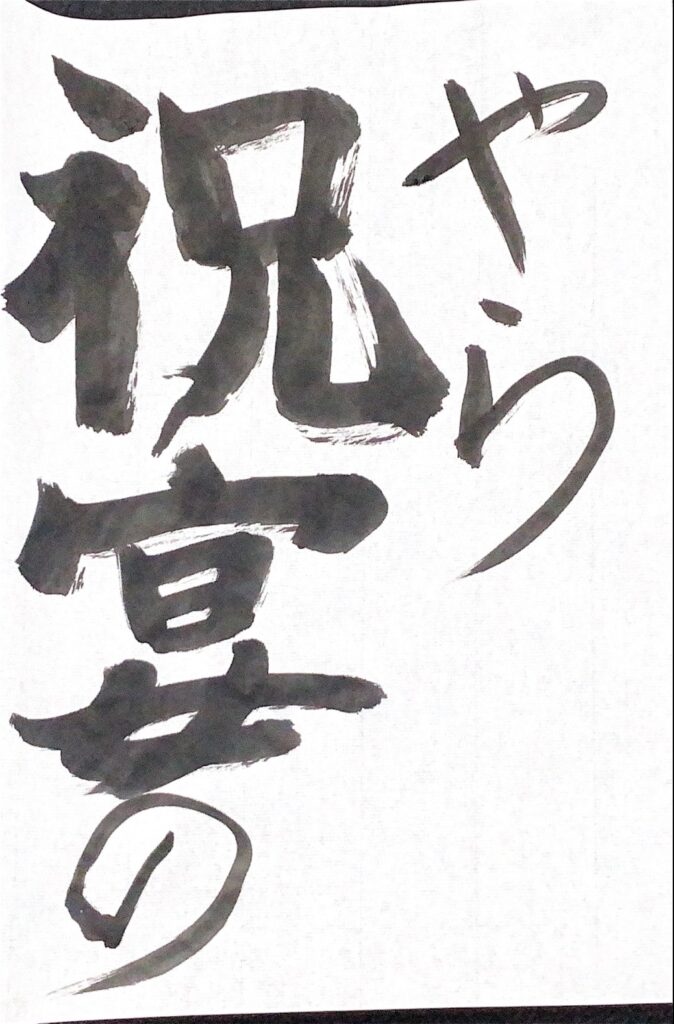 やら
祝宴の